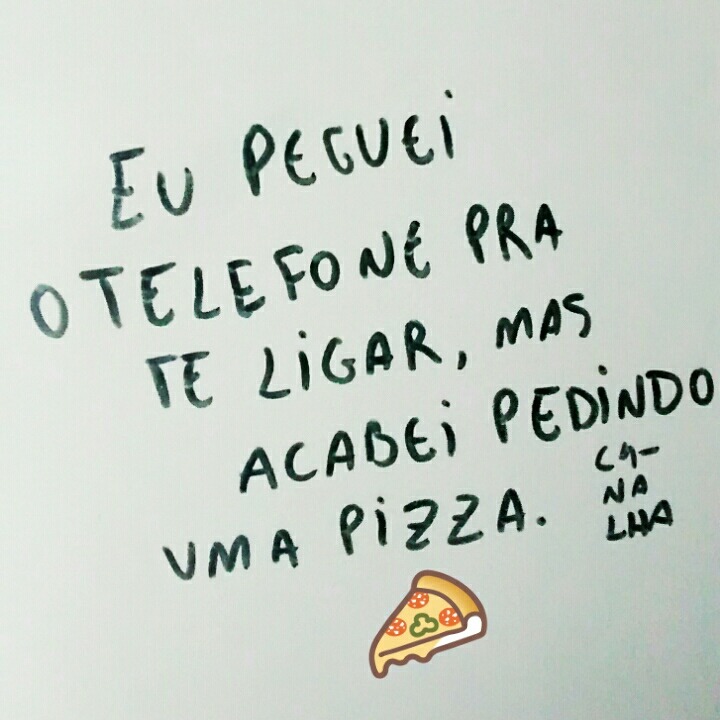 EU PEGUEI
O TELEFONE PRA
TE LIGAR, MAS
ACABEI PEDINDO
UMA PIZZA.
CA-
NA
LHA